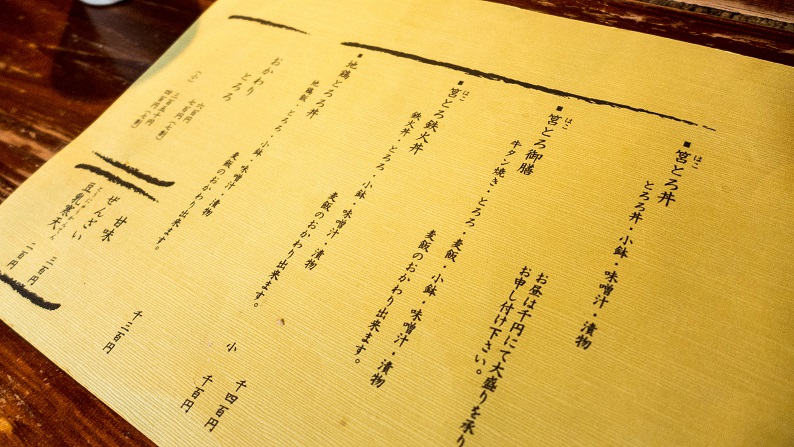 ■筥とろ丼
はこ
とろろ丼・小鉢・味噌汁・漬物
お昼は千円にて大盛りを承り
お申し付け下さい。
■筥とろ御膳
はこ
牛タン焼き・とろろ・麦飯・小鉢・味噌汁・漬物
麦飯のおかわり出来ます。
■筥とろ鉄火丼
はこ
鉄火丼・とろろ・小鉢・味噌汁・漬物
麦飯のおかわり出来ます。
小 千四百円
千百円
■地鶏とろ丼
地鶏飯・とろろ・小鉢・味噌汁・漬物
麦飯のおかわり出来ます。
千三百円
おかわり
とろろ
六百円
七百円
三百五十円
四百円
甘味
ぜんざい 三百円
豆乳寒天 二百円
とうにゅうかんてん